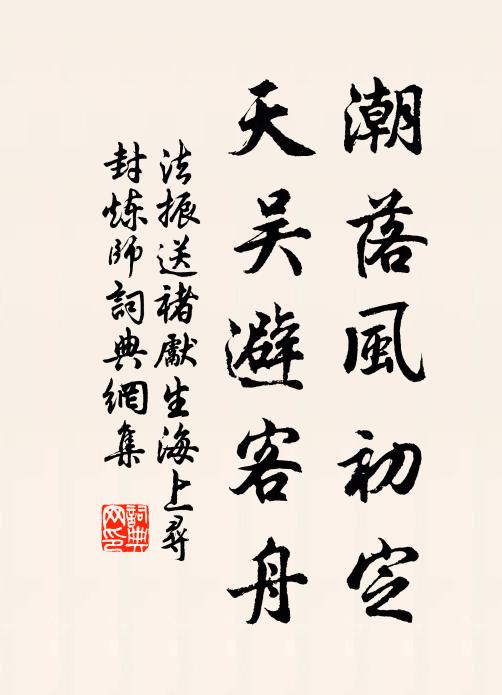 潮落風初定
天吴避客舟
法振送褚獻生海上尋
封炼师詞典網集
詞典
网印